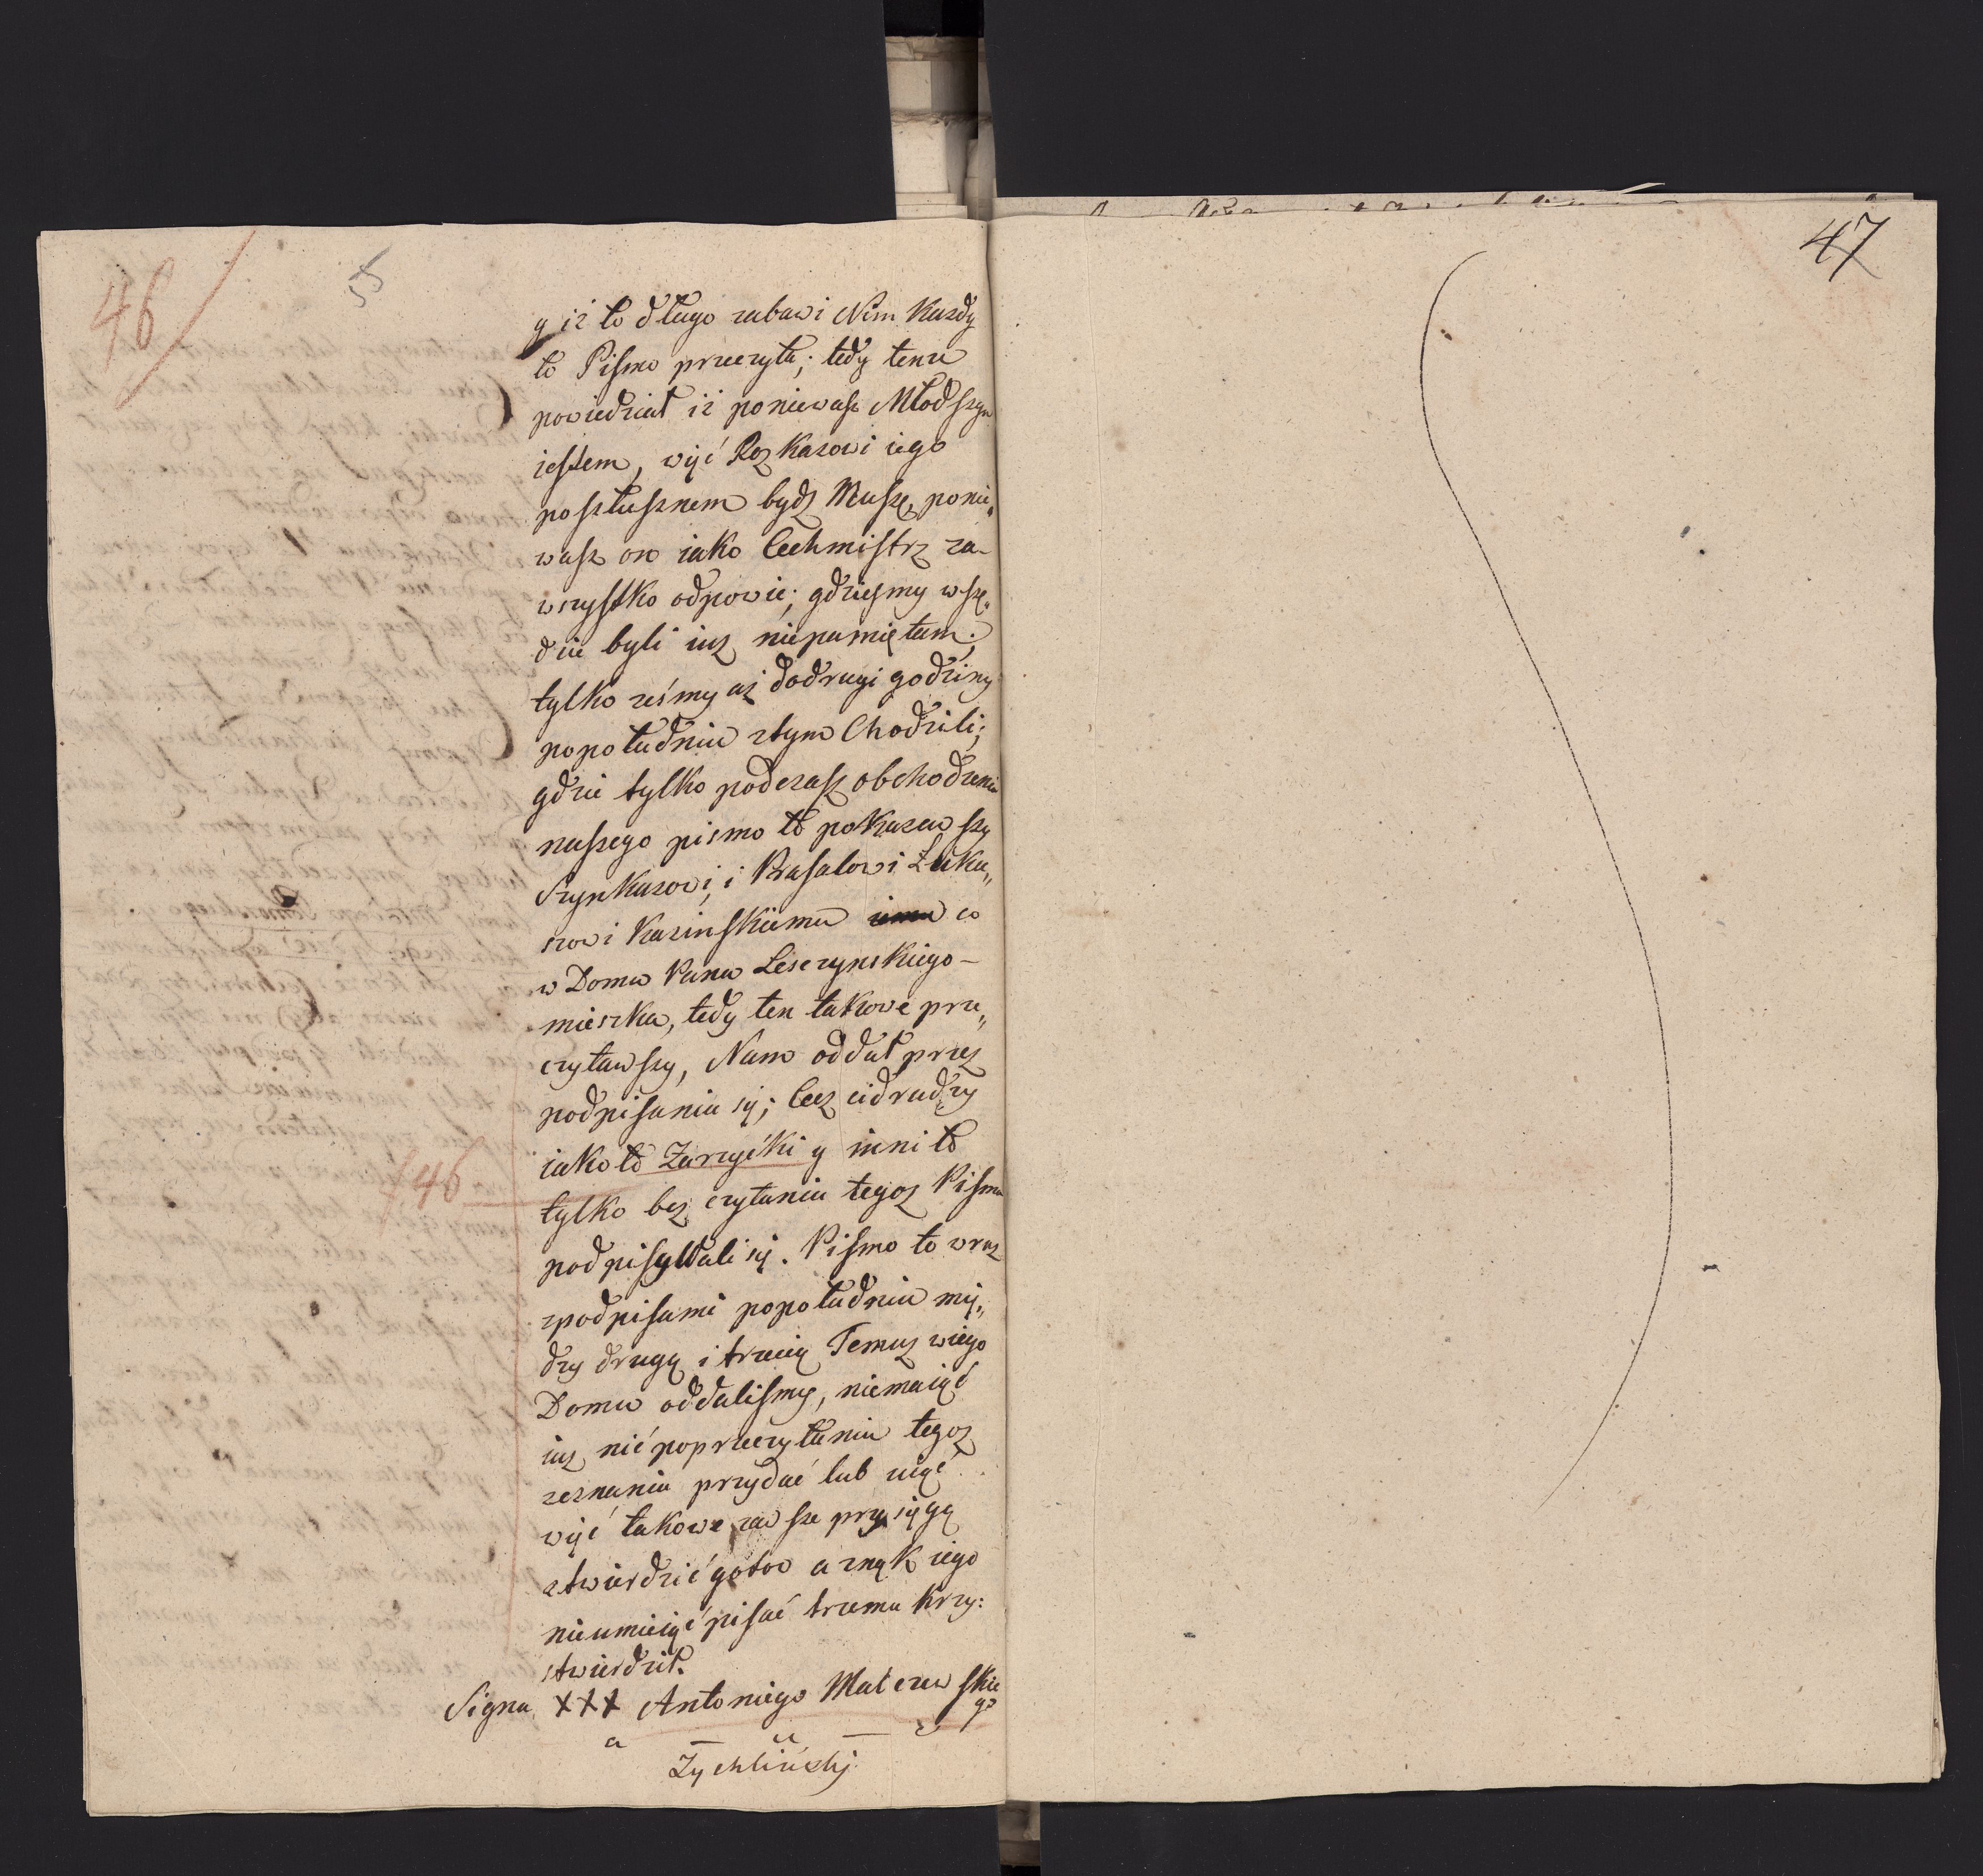 46
55
y iż to długo zabawi Nim Kazdy
to Pismo przeczyta; tedy tenze
powiedział iż poniewasz Młodszym
iestem, więć Rozkazowi iego
poszłusznem bydz Muszę, ponie„
wasz on iako Cechmistrz za-
wszystko odpowie; gdzieśmy wszę„
dzie byli iuz niepamiętam;
tylko ześmy az dodrugi godziny
popołudniu ztym Chodzili;
gdzie tylko podczasz obchodzenia
naszego pismo to pokazawszy
Szynkazowi, i Wasalowi Łuka„
szowi Kazinskiemu iemu co
w Domu Pana Leszczynskiego -
mieszka, tedy ten takowe prze„
czytawszy, Nam oddał przez
podpisania się; lecz cidrudzy
iako to Zarzyćki y inni to
146
tylko bez czytania tegoz Pisma
podpisywali się. Pismo to wraz
zpodpisami popołudniu mię„
dzy drugą i trzecią Temuz wiego
Domu oddalismy, niemaiąć
iuz nić poprzeczytaniu tegoz
zeznania przydać lub uiąć
więć takowe zawsze przysięgą
stwierdzić gotow a znąk iego
nieumieiąć pisać trzema krzy:
stwierdził.
Signa XXX Antoniego Matczewskie
go
a u s
Zychlinskj
47